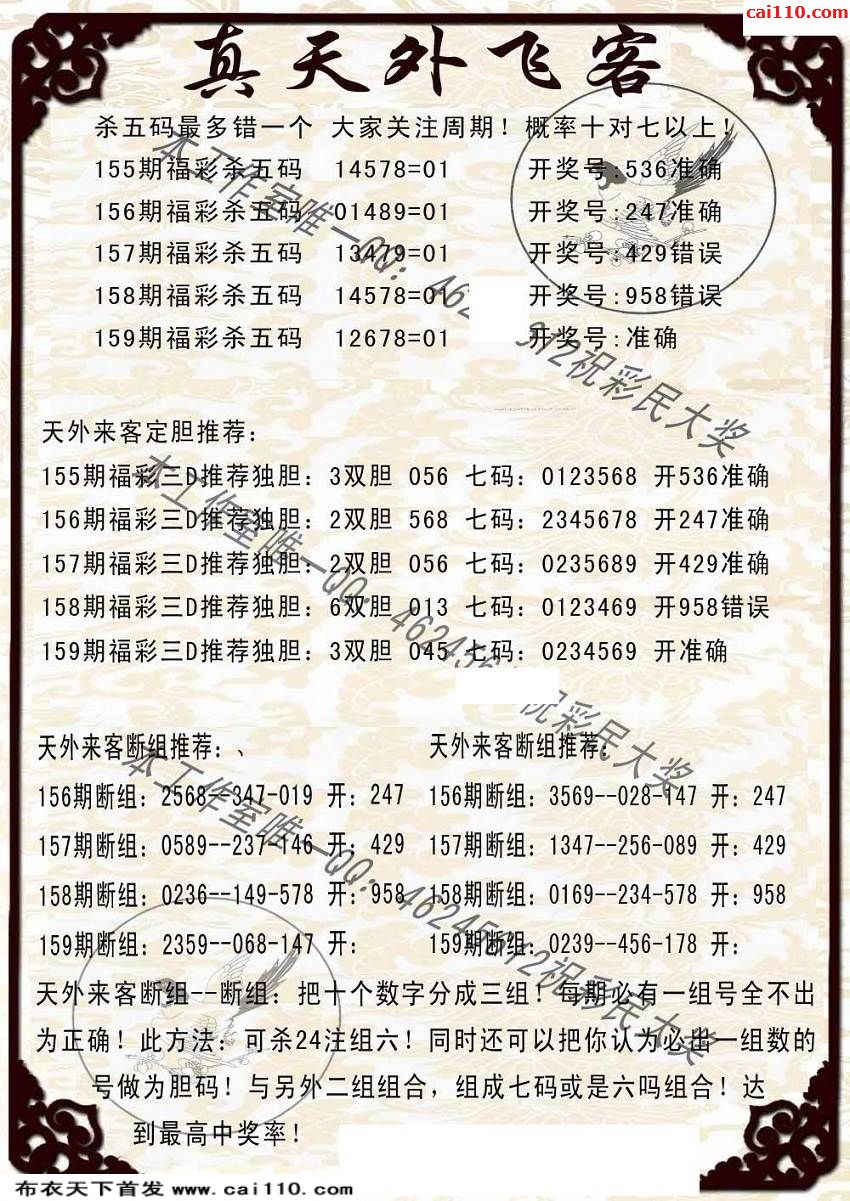 cai110.com
真天外飞客
杀五码最多错一个 大家关注周期！概率十对七以上！
155期福彩杀五码 14578=01 开奖号:536准确
156期福彩杀五码 01489=01 开奖号:247准确
157期福彩杀五码 13479=01 开奖号:429错误
158期福彩杀五码 14578=01 开奖号:958错误
159期福彩杀五码 12678=01 开奖号:准确
天外来客定胆推荐：
155期福彩三D推荐独胆：3双胆 056 七码：0123568 开536准确
156期福彩三D推荐独胆：2双胆 568 七码：2345678 开247准确
157期福彩三D推荐独胆：2双胆 056 七码：0235689 开429准确
158期福彩三D推荐独胆：6双胆 013 七码：0123469 开958错误
159期福彩三D推荐独胆：3双胆 045 七码：0234569 开准确
天外来客断组推荐：、 天外来客断组推荐：
156期断组：2568--347-019 开：247 156期断组：3569--028-147 开：247
157期断组：0589--237-146 开：429 157期断组：1347--256-089 开：429
158期断组：0236--149-578 开：958 158期断组：0169--234-578 开：958
159期断组：2359--068-147 开： 159期断组：0239--456-178 开：
天外来客断组--断组：把十个数字分成三组！每期必有一组号全不出
为正确！此方法：可杀24注组六！同时还可以把你认为必出一组数的
号做为胆码！与另外二组组合，组成七码或是六吗组合！达
到最高中奖率！
本工作室唯一QQ：462 912祝彩民大奖
本工作室唯一QQ：462456 祝彩民大奖
本工作室唯一QQ：462456912祝彩民大奖
布衣天下首发 www.cai110.com